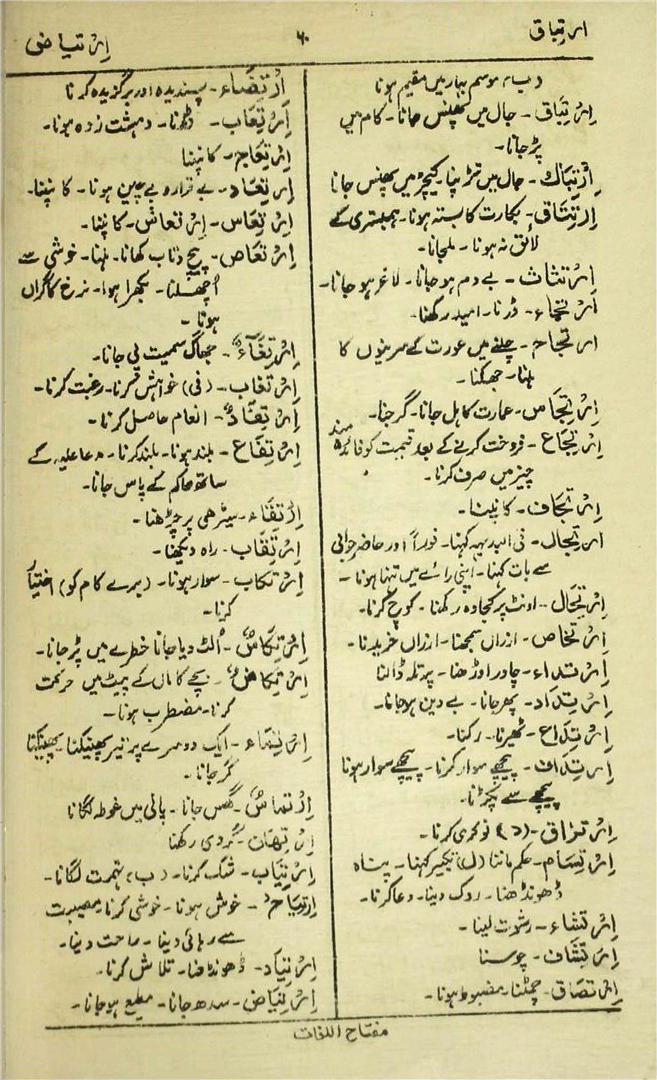 ارتباق
۶۰
اِرتیاض
(ب) موسم بہار میں مقیم ہونا
اِرتِبَاق - جال میں پھنس جانا - کام میں
پڑ جانا -
اِرْتِبَاك - جال میں تڑپنا - کیچڑ میں پھنس جانا
اِرْتِتَاق - بکارت کا بستہ ہونا - ہمبستری کے
لائق نہ ہونا - ملجانا -
اِرتثاث - بے دم ہوجانا - لاغر ہو جانا -
اِرتجاء - ڈرنا - امید رکھنا -
ارتجاج - چلنے میں عورت کے سرینوں کا
ہلنا - جھکنا -
اِرتِجَاس - عمارت کا ہل جانا - گرجنا -
اِرتِجَاع - فروخت کرنے کے بعد قیمت کو فائدہ مند
چیز میں صرف کرنا -
اِرتجاف - کانپنا -
ارتِجال - فی البدیہہ کہنا - فوراً اور حاضر جوابی
سے بات کہنا - اپنی رائے میں تنہا ہونا -
اِرتِحَال - اونٹ پر کجاوہ رکھنا - کوچ کرنا -
اِرتخاص - ارزاں سمجھنا - ارزاں خریدنا -
اِرتداء - چادر اوڑھنا - پرتلہ ڈالنا
اِرتِدَاد - پھر جانا - بے دین ہوجانا -
اِرتِدَاع - ٹھہرنا - رکنا -
اِرتِدَاف - پیچھے سوار کرنا - پیچھے سوار ہونا
پیچھے سے پکڑنا -
اِرتزاق - نوکری کرنا -
اِرتِسَام - حکم ماننا (ل) تکبیر کہنا - پناہ
ڈھونڈھنا - روک دینا - دعا کرنا -
اِرتشاء - رشوت لینا -
اِرتِشَاف - چوسنا
اِرتصَاق - چمٹنا - مضبوط ہونا -
اِرْتِضَاء - پسندیدہ اور برگزیدہ کرنا
اِرتِعَاب - ڈرنا - دہشت زدہ ہونا -
اِرتِعَاج - کانپنا
اِرتِعَاد - بے قرار و بے چین ہونا - کانپنا -
اِرتِعَاس - اِرتعاش - کانپنا -
اِرتعَاص - پیچ و تاب کھانا - ہلنا - خوشی سے
اُچھلنا - بکھرا ہوا - نرخ کا گراں
ہونا -
اِرتِغَآء - جھاگ سمیت پی جانا -
اِرتغاب - (فی) خواہش کرنا - رغبت کرنا -
اِرتِفَاد - انعام حاصل کرنا -
اِرتِفَاع - بلند ہونا - بلند کرنا - مدعا علیہ کے
ساتھ حاکم کے پاس جانا -
اِرْتِقَاء - سیڑھی پر چڑھنا -
اِرتِقَاب - راہ دیکھنا -
اِرتکاب - سوار ہونا - (برے کام کو) اختیار
کرنا -
اِرتِکَاس - اُلٹ دیا جانا خطرے میں پڑ جانا -
اِرتِکَاض - بچے کا ماں کے پیٹ میں حرکت
کرنا - مضطرب ہونا -
اِرتِمَاء - ایک دوسرے پر تیر پھینکنا - پھینکنا
گر جانا -
اِرْتماس - گھس جانا - پانی میں غوطہ لگانا
اِرتِهَان - گروی رکھنا
اِرتِيَاب - شک کرنا - (ب) تہمت لگانا -
اِرتِيَاح - خوش ہونا - خوشی کرنا - مصیبت
سے رہائی دینا - راحت دینا -
اِرتِيَاد - ڈھونڈھنا - تلاش کرنا -
اِرتِيَاض - سدھ جانا - مطیع ہوجانا -
مفتاح اللغات